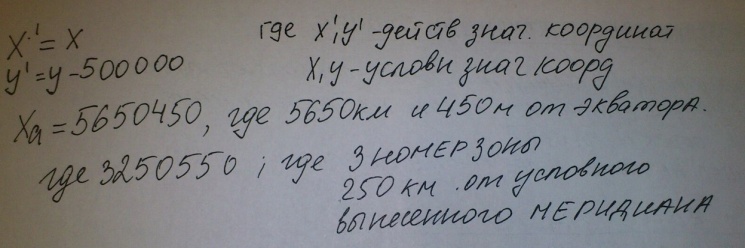 X' = X где x', y' - действ знач. координат
y' = y - 500000 X, y - условн знач коорд
Xа = 5650450, где 5650км и 450м от экватора.
где 3250550 ; где 3 номер зоны
250 км. от условного
вынесенного меридиана